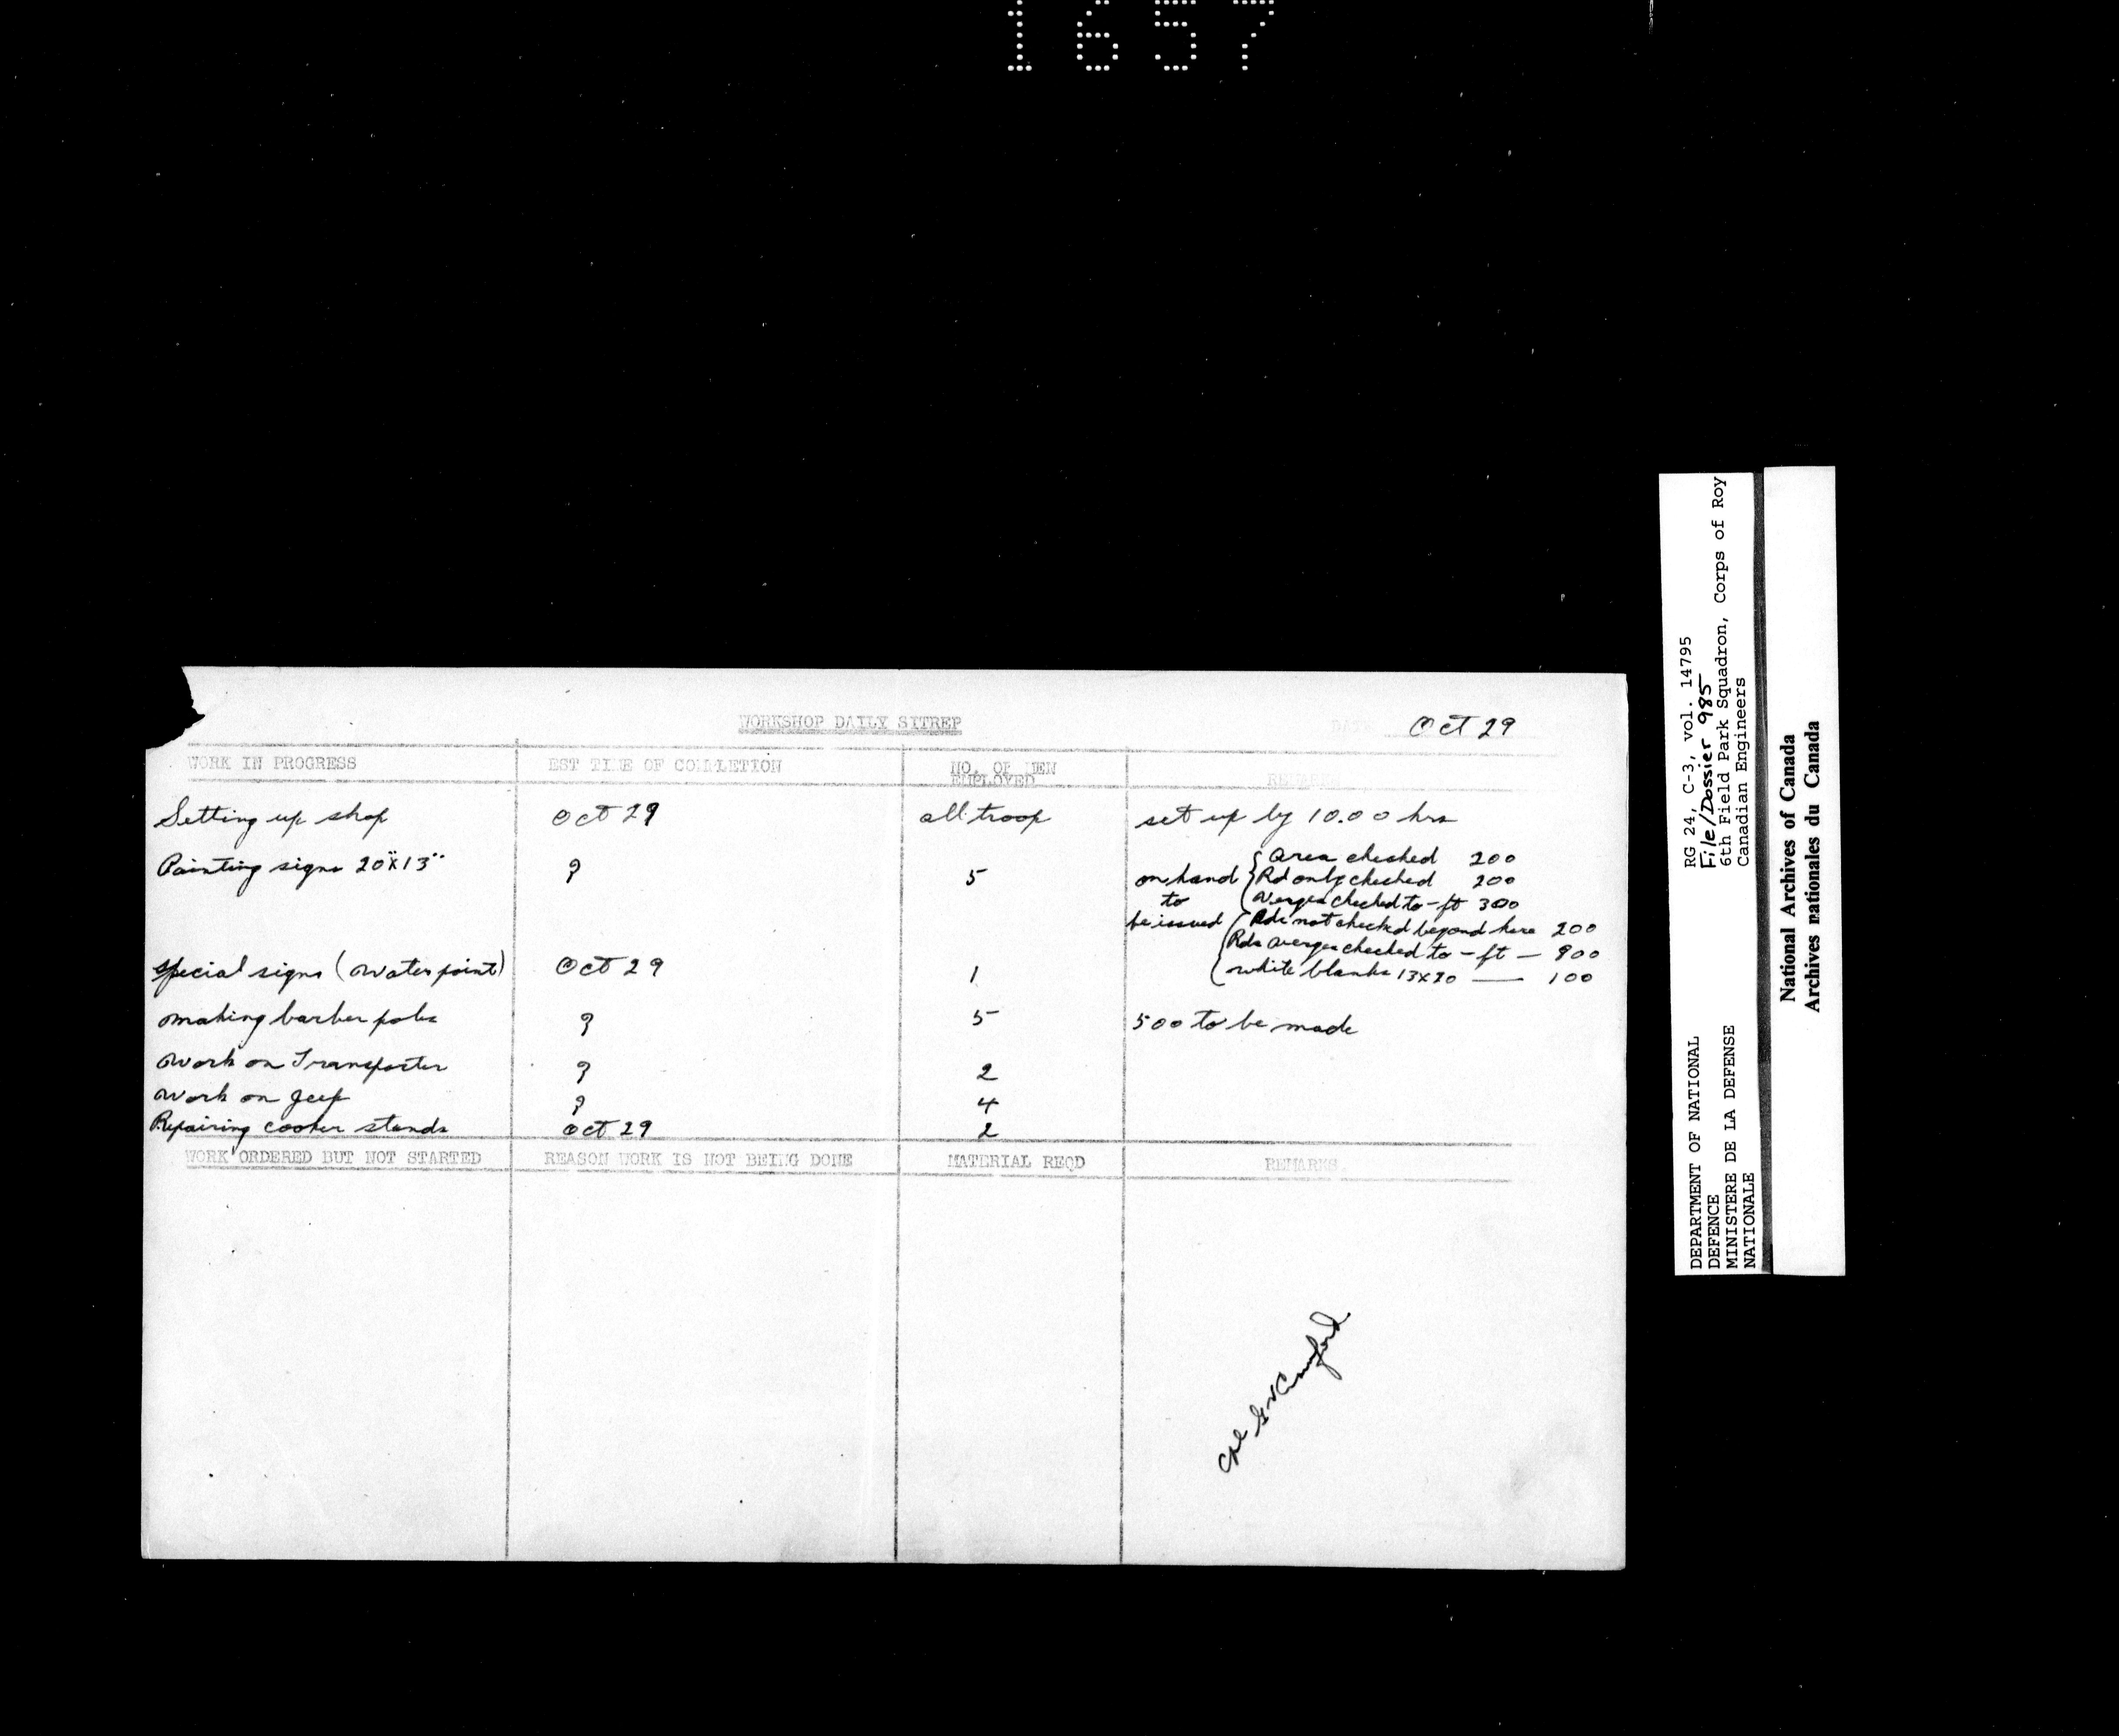 1657
WORKSHOP DAILY SITREP
DATE Oct 29
WORK IN PROGRESS EST TIME OF COMPLETION NO. OF MEN EMPLOYED REMARKS
Setting up shop Oct 29 all troop set up by 10.00 hrs
Painting signs 20"x13" ? 5 on hand to be issued
Area checked 200
Rd only checked 200
Verges checked to - ft 300
Rds not checked beyond here 200
Rds verges checked to - ft — 900
white blanks 13x20 — 100
Special signs (Water point) Oct 29 1
making barber poles ? 5 500 to be made
Work on Transporter ? 2
Work on Jeep ? 4
Repairing cooker stands Oct 29 2
WORK ORDERED BUT NOT STARTED REASON WORK IS NOT BEING DONE MATERIAL REQD REMARKS
Cpl
RG 24, C-3, vol. 14795
File/Dossier 985
6th Field Park Squadron, Corps of Roy
Canadian Engineers
DEPARTMENT OF NATIONAL
DEFENCE
MINISTERE DE LA DEFENSE
NATIONALE
National Archives of Canada
Archives nationales du Canada